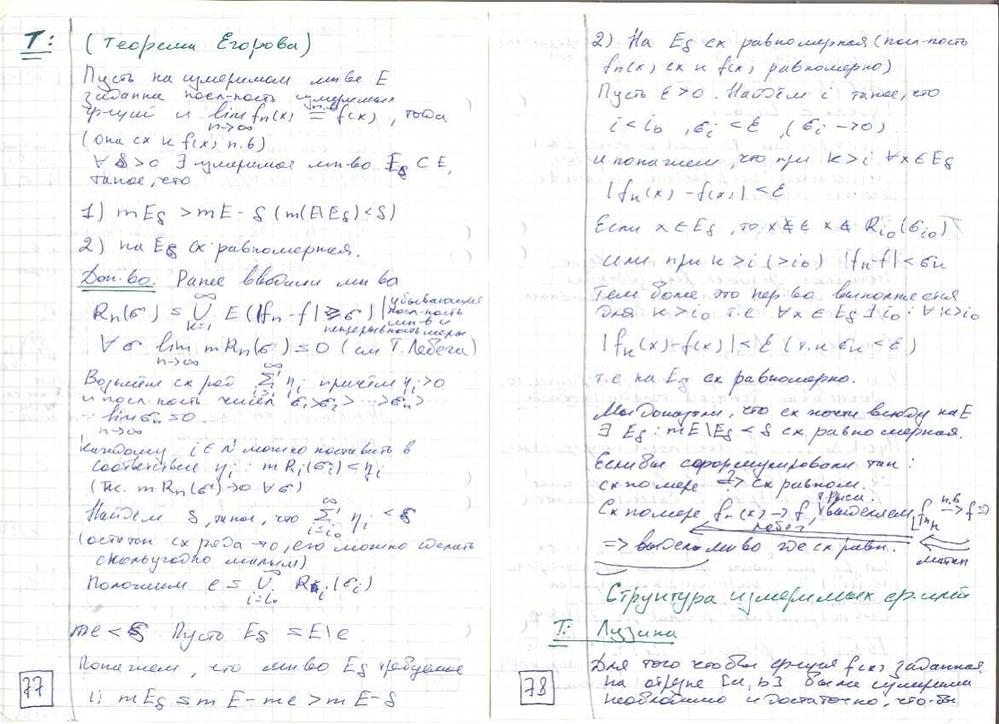 Т:
(Теорема Егорова)
Пусть на измеримом мн-ве E
задана посл-ность измеримых
ф-ций и lim fn(x) = f(x), тогда
n→∞
п.в
(она сх к f(x) п.в)
∀ δ>0 ∃ измеримое мн-во Eδ ⊂ E,
такое, что
1) mEδ > mE - δ (m(E\Eδ) < δ)
2) на Eδ сх равномерная.
Док-во. Ранее вводили мн-ва
Rn(σ) = ∪ E(|fn-f| ≥ σ) | убывающая посл-ность мн-в и непрерывность меры
k=1
∞
∀ σ lim mRn(σ) = 0 (см Т. Лебега)
n→∞
Возьмём сх ряд ∑ ηi причём ηi>0
и посл-ность чисел σ1>σ2>...>σn>...
lim σn = 0
n→∞
Каждому i ∈ N можно поставить в
соответствие ηi : mRi(σi) < ηi
(т.к. mRn(σ)→0 ∀ σ)
Найдём δ, такое, что ∑ ηi < δ
i=i0
∞
(остаток сх ряда →0, его можно сделать
сколь угодно малым)
Положим e = ∪ Ri(σi)
i=i0
∞
me < δ Пусть Eδ = E\e
Покажем, что мн-во Eδ требуемое
1) mEδ = mE - me > mE - δ
77
2) На Eδ сх равномерная (посл-ность
fn(x) сх к f(x) равномерно)
Пусть ε>0. Найдём i такое, что
i < i0, σi < ε, (σi →0)
и покажем, что при k>i ∀x∈Eδ
|fn(x) - f(x)| < ε
Если x∈Eδ, то x∉e x∉ Ri0(σi0)
или при k>i (>i0) |fn-f| < σn
Тем более это нер-во выполняется
для k>i0 т.е ∀x∈Eδ ∃ i0: ∀k>i0
|fn(x)-f(x)| < ε (т.к σn < ε)
т.е на Eδ сх равномерно.
Мы доказали, что сх почти всюду на E
∃ Eδ : mE\Eδ < δ сх равномерная.
Если бы сформулировали так:
сх по мере ⇒ сх равном.
Сх по мере fn(x)→f, выделяем fnk → f ⇒
Т. Рисса.
п.в
Лебег
⇒ выдел мн-во где сх равн.
Структура измеримых ф-ций
Т: Лузина
Для того чтобы ф-ция f(x) заданная
на отрезке [a, b] была измерима
необходимо и достаточно, что-бы
78